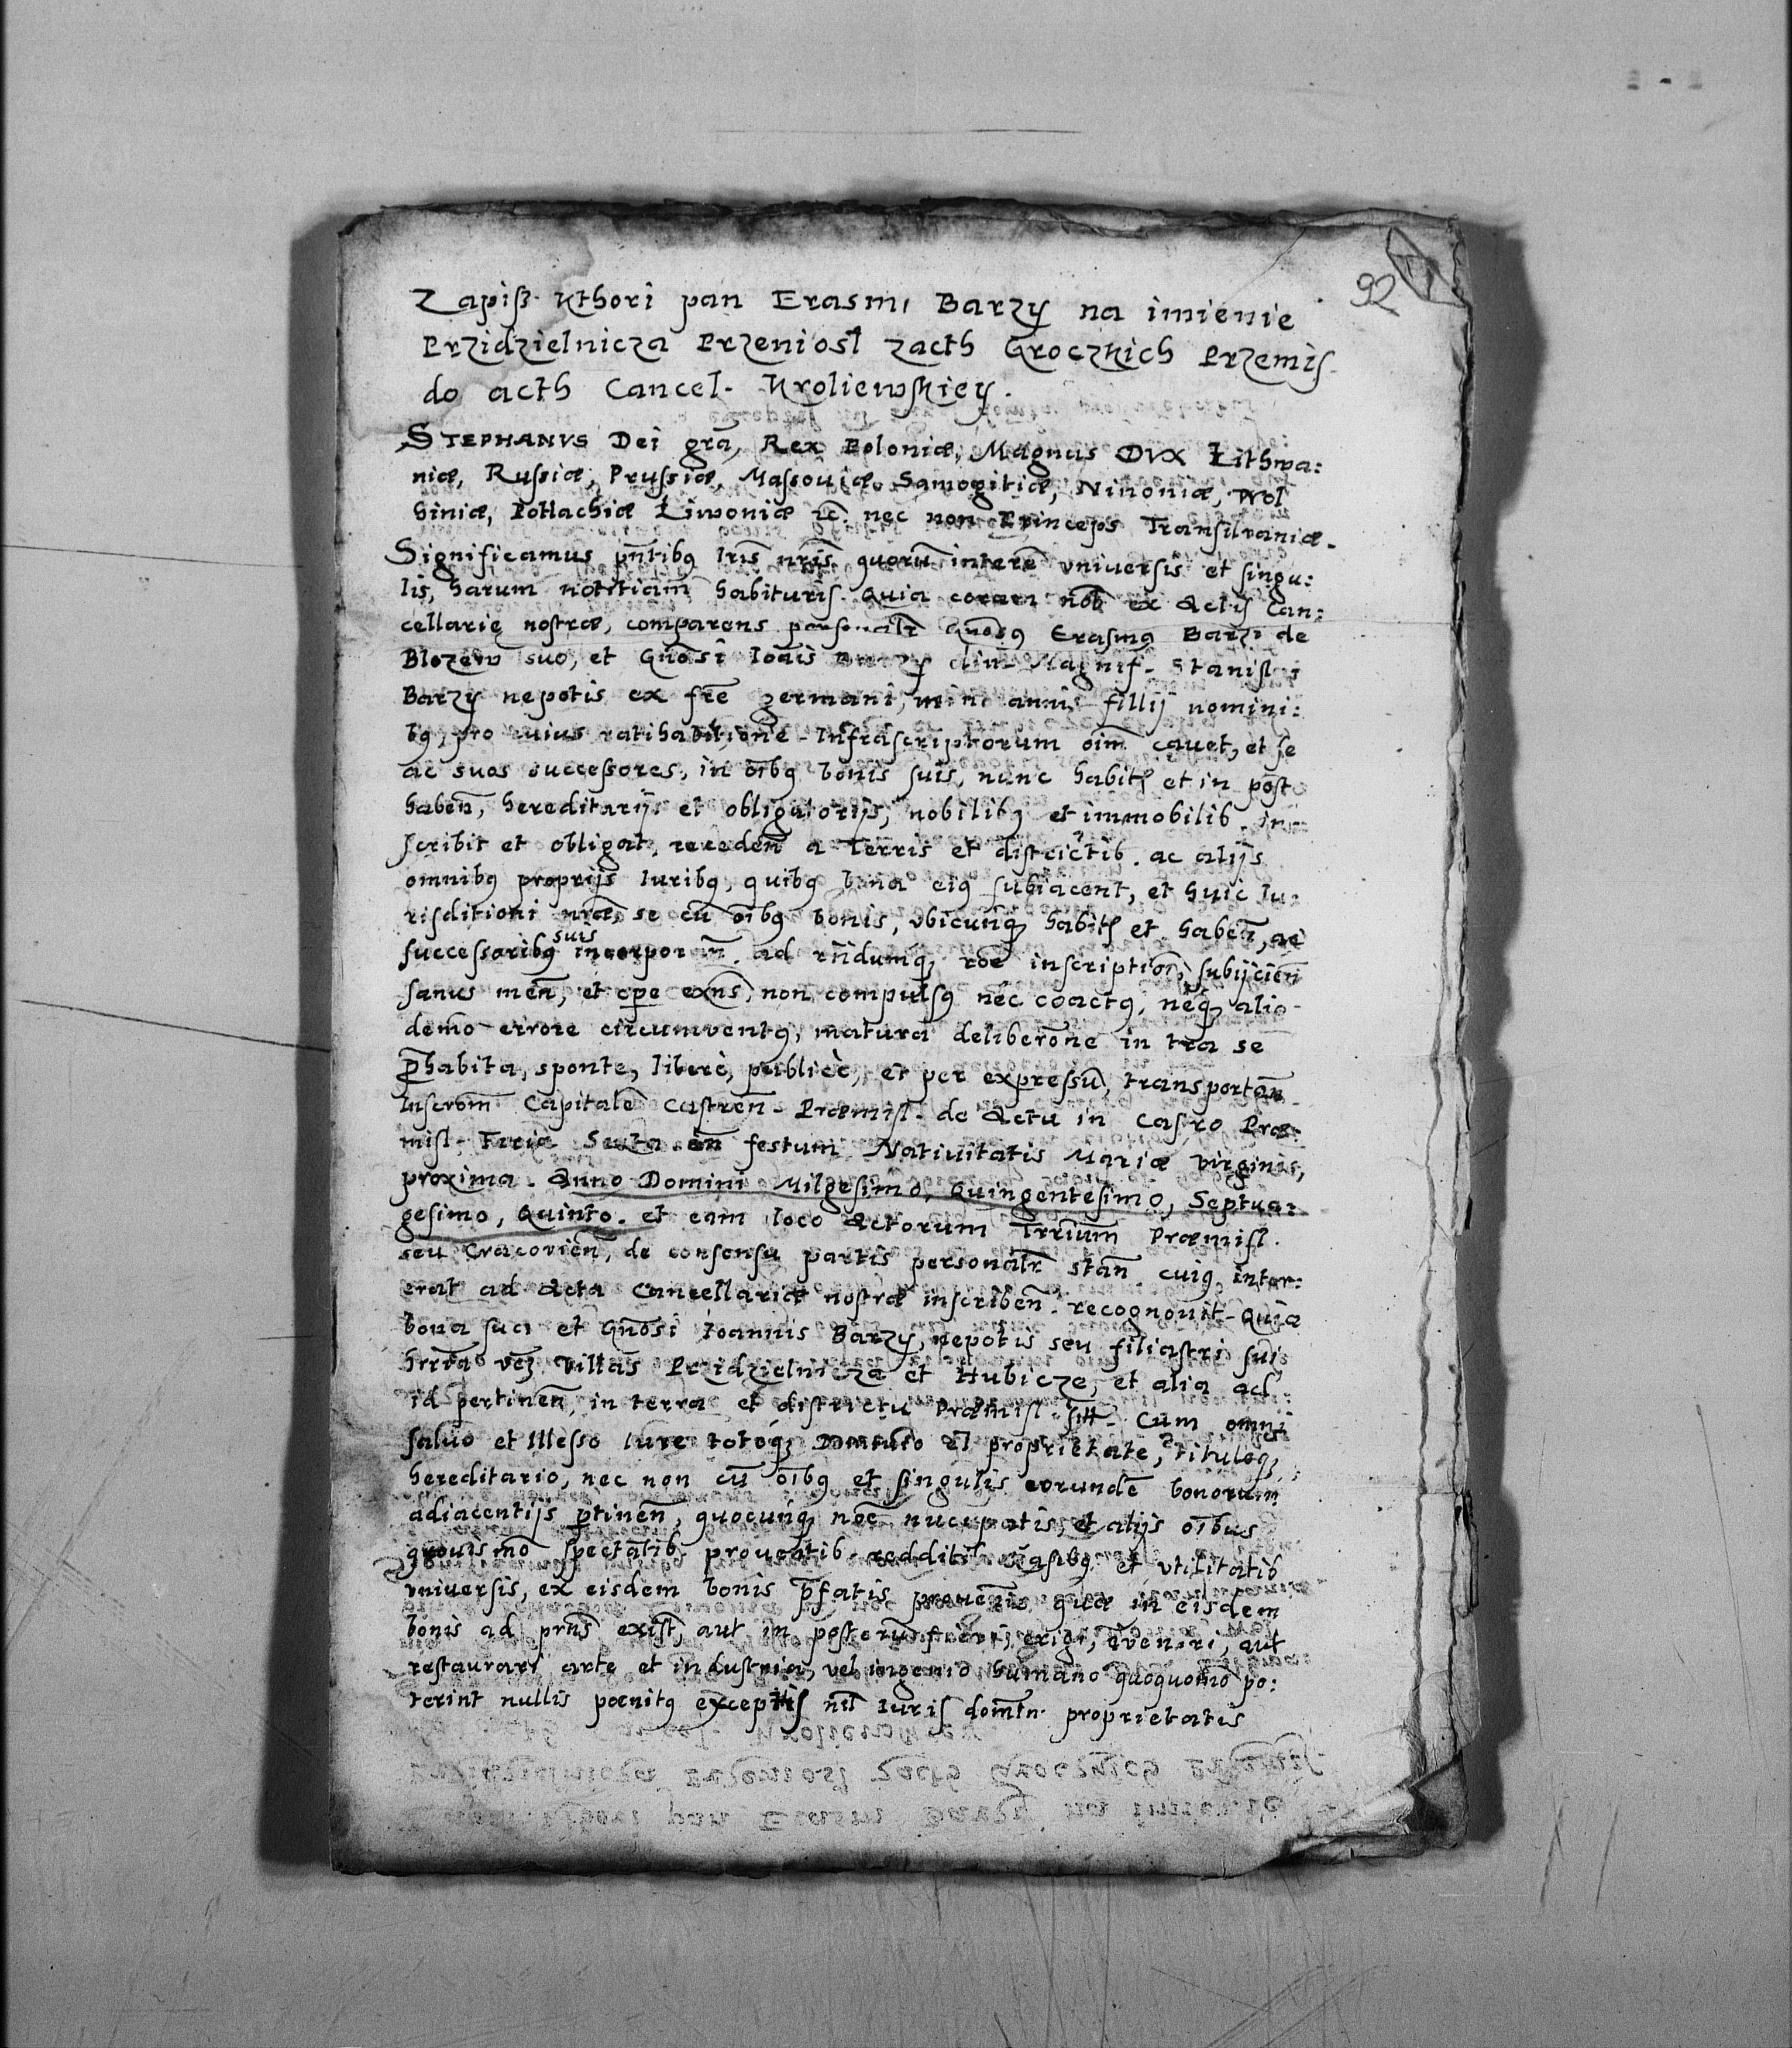 92
Zapiß Kthori pan Erasm, Barzÿ na imienie
Przidzielnicza Przeniosł zacth Groczkich Przemis-
do acth Cancel. Kroliewskieÿ.
STEPHANVS Dei grã, Rex Poloniæ, Magnus DVX Lithwa:
niæ, Russiæ, Prussiæ, Massouiæ, Samogitiæ, Ninoniæ, Wol
hiniæ, Potlachiæ Liwoniæ zc̃. nec non Princeps Transiluaniæ.
Significamus pñtibꝰ lris nr̃is quorũ interẽ vniuersis et singu:
lis, harum notitiam habituris. Quia coram nob̃ ex Actis Can:
cellarię nostræ, comparens personalr̃ Gnõsꝰ Erasmꝰ Barzi de
Blozew suo, et Gnõsi Ioãis Barzÿ olim Magnif. Stanisl.
Barzÿ nepotis ex frẽ germani, min annis fillij nomini:
bꝰ, pro cuius ratihabitiõne Infrascriptorum oim̃ cauet, et se
ac suos successores, in oĩbꝰ bonis suis, nunc habitꝭ et in post
habeñ, hereditarijs et obligatorijs, nobilibꝰ et immobilib. in-
scribit et obligat, recedeñ a Terris et districtib. ac alijs
omnibꝰ proprijs Iuribꝰ, quibꝰ bona eiꝰ subiacent, et huic Iu:
risditioni nræ, se cũ oĩbꝰ bonis, vbicunqꝫ habitꝭ et habeñ, ac
successoribꝰ suis incorpor ñ. ad rñdumqꝫ rõe inscriptiõis subijcieñ
sanus meñ, et cpe exñs, non compulsꝰ nec coactꝰ, neqꝫ alio-
demo errore circumventꝰ, matura deliberõne in tra se
p̃habita, sponte, liberè, publicè, et per expressũ, transportañ
Inscrom̃ Capitalẽ Castreñ Præmisl. de Actu in Castro Præ:
misl. Feria Sexta añ festum Natiuitatis Mariæ virginis,
proxima. Anno Domini Milgesimo, Quingentesimo, Septua:
gesimo, Quinto. et eam loco Actorum Trrium̃ Præmisl.
seu Cracovieñ, de consensu partis personalr̃ stañ cuiꝰ inter:
erat ad Acta Cancellariæ nostræ inscribeñ. recognouit. Quia
bona sua et Gnõsi Ioannis Barzÿ, nepotis seu filiastri sui
hrrta vez̃ Villas Przidzielnicza et Hubicze, et alia ad
id pertineñ, in terra et districtu Præmisl. sitt. Cum omni
saluo et Illesso Iure totoqꝫ Dominio et proprietate, et tituloqꝫ
hereditario, nec non cũ oĩbꝰ et singulis eorundẽ bonorum
adiacentijs p̃tineñ, quocunqꝫ noẽ nucupatis, et alijs oĩbus
quouismõ spectãtib. prouẽtib. redditib. Cẽsibꝰ et vtilitatib
vniuersis, ex eisdem bonis p̃fatis prouenĩe quæ in eisdem
bonis ad prñs exist̃, aut in posterũ fieri, erigi, ẽveniri, aut
restaurari arte et industria, vel ingenio humano quoquomõ po:
terint nullis pœnitꝰ exceptis nil Iuris domĩn. proprietatis